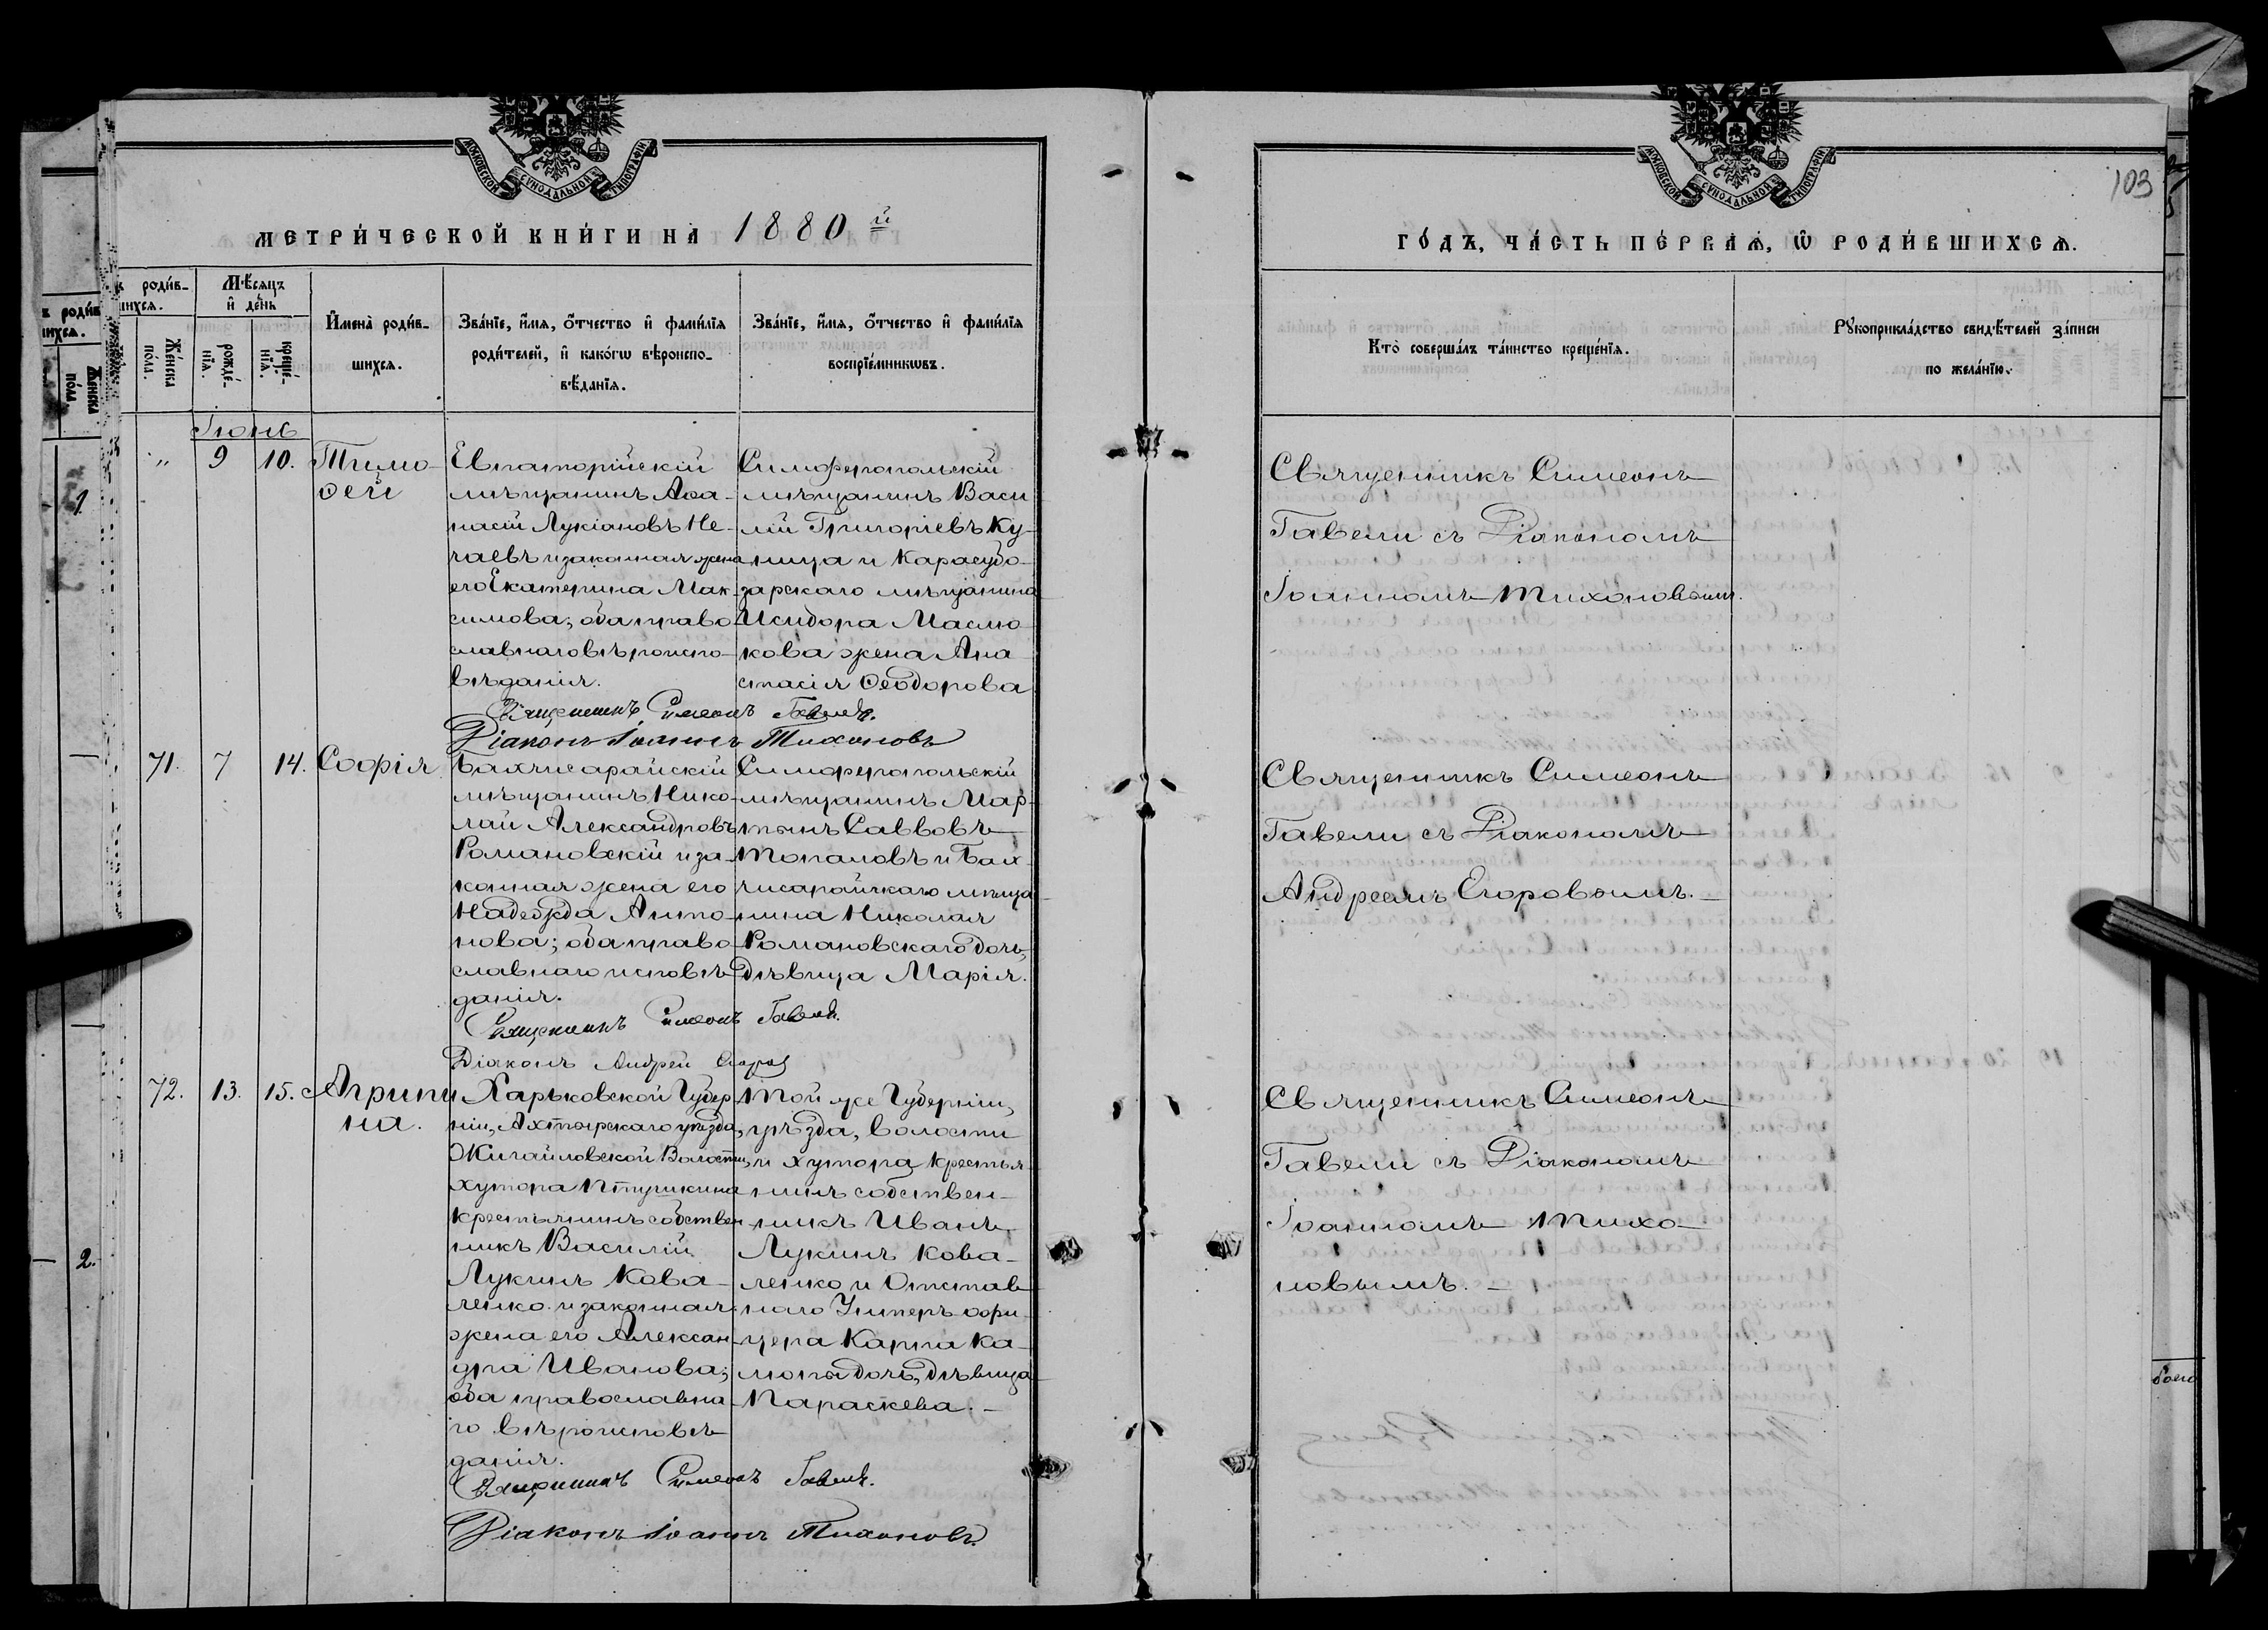 МОСКОВСКОЙ СѴНОДАЛЬНОЙ ТИПОГРАФІИ
МЕТРИ́ЧЕСКОЙ КНИ́ГИ НА̀ 1880й
роди́в-
шихся.
Же́нска по́ла.
Мѣ́сяцъ и҆ де́нь
рожде́-нїя.
креще́-нїя.
И҆мена̀ роди́в-
шихся.
Зва́нїе, и҆́мя, ѻ҆́тчество и҆ фами́лїя
роди́телей, и҆ како́гѡ вѣроиспо-
вѣ́данїя.
Зва́нїе, и҆́мя, ѻ҆́тчество и҆ фами́лїя
воспрїе́мникѡвъ.
Іюнь
" 9 10. Тимо-
ѳей
Евпаторійскій
мѣщанинъ Аѳа-
насій Лукіановъ Не-
чаевъ и законная жена
его Екатерина Мак-
симова; оба право
славнаго вѣроиспо-
вѣданія.
Симферопольскій
мѣщанинъ Васи
лій Григоріевъ Ку-
ница и Карасубо-
зарскаго мѣщанина
Исидора Маслю
кова жена Ана
стасія Ѳеодорова
Священникъ Симеонъ Гавели.
Діаконъ Іоаннъ Тихоновъ
71. 7 14. Софія
Бахчисарайскій
мѣщанинъ Нико-
лай Александровъ
Романовскій и за-
конная жена его
Надежда Анто-
нова; оба право
славнаго исповѣ
данія.
Симферопольскій
мѣщанинъ Мар-
тынъ Саввовъ
Топаловъ и Бах-
чисарайскаго мѣща
нина Николая
Романовскаго дочь,
дѣвица Марія.
Священникъ Симеонъ Гавели.
Діаконъ Андрей Егоров
72. 13. 15. Агрипи
на.
Харьковской Губер
ніи, Ахтырскаго уѣзда,
Жигайловской Волости,
хутора Птушкина
крестьянинъ собствен
никъ Василій
Лукинъ Кова-
ленко и законная
жена его Алексан-
дра Иванова;
оба православна-
го вѣроисповѣ
данія.
Той же Губерніи,
уѣзда, волости
и хутора крестья-
нинъ собствен-
никъ Иванъ
Лукинъ Кова-
ленко и Отстав
наго Унтеръ-офи-
цера Карпа Ка-
дочь, дѣвица
Параскева.
Священникъ Симеонъ Гавели.
Діаконъ Іоаннъ Тихоновъ.
МОСКОВСКОЙ СѴНОДАЛЬНОЙ ТИПОГРАФІИ
103
ГО́ДЪ, ЧА́СТЬ ПЕ́РВАѦ, Ѡ҆ РОДИ́ВШИХСѦ.
Кто̀ соверша́лъ та́инство креще́нїя.
Рꙋкоприкла́дство свидѣ́телей за́писи
по жела́нїю.
Священникъ Симеонъ
Гавели съ Діакономъ
Іоанномъ Тихоновымъ.
Священникъ Симеонъ
Гавели съ Діакономъ
Андреемъ Егоровымъ.
Священникъ Симеонъ
Гавели съ Діакономъ
Іоанномъ Тихо-
новымъ.